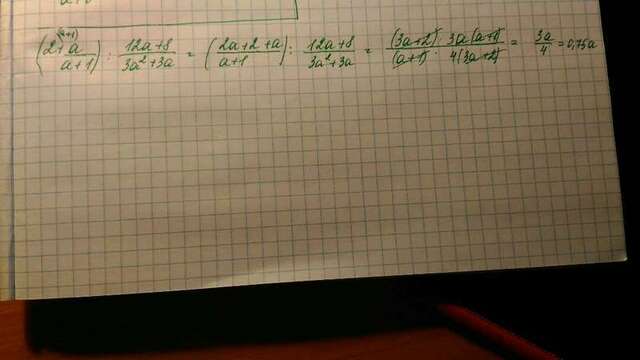 (2 + a/(a+1)) : (12a+8)/(3a²+3a) = ((2a+2+a)/(a+1)) : (12a+8)/(3a²+3a) = (3a+2)/(a+1) · 3a(a+1)/4(3a+2) = 3a/4 = 0,75a